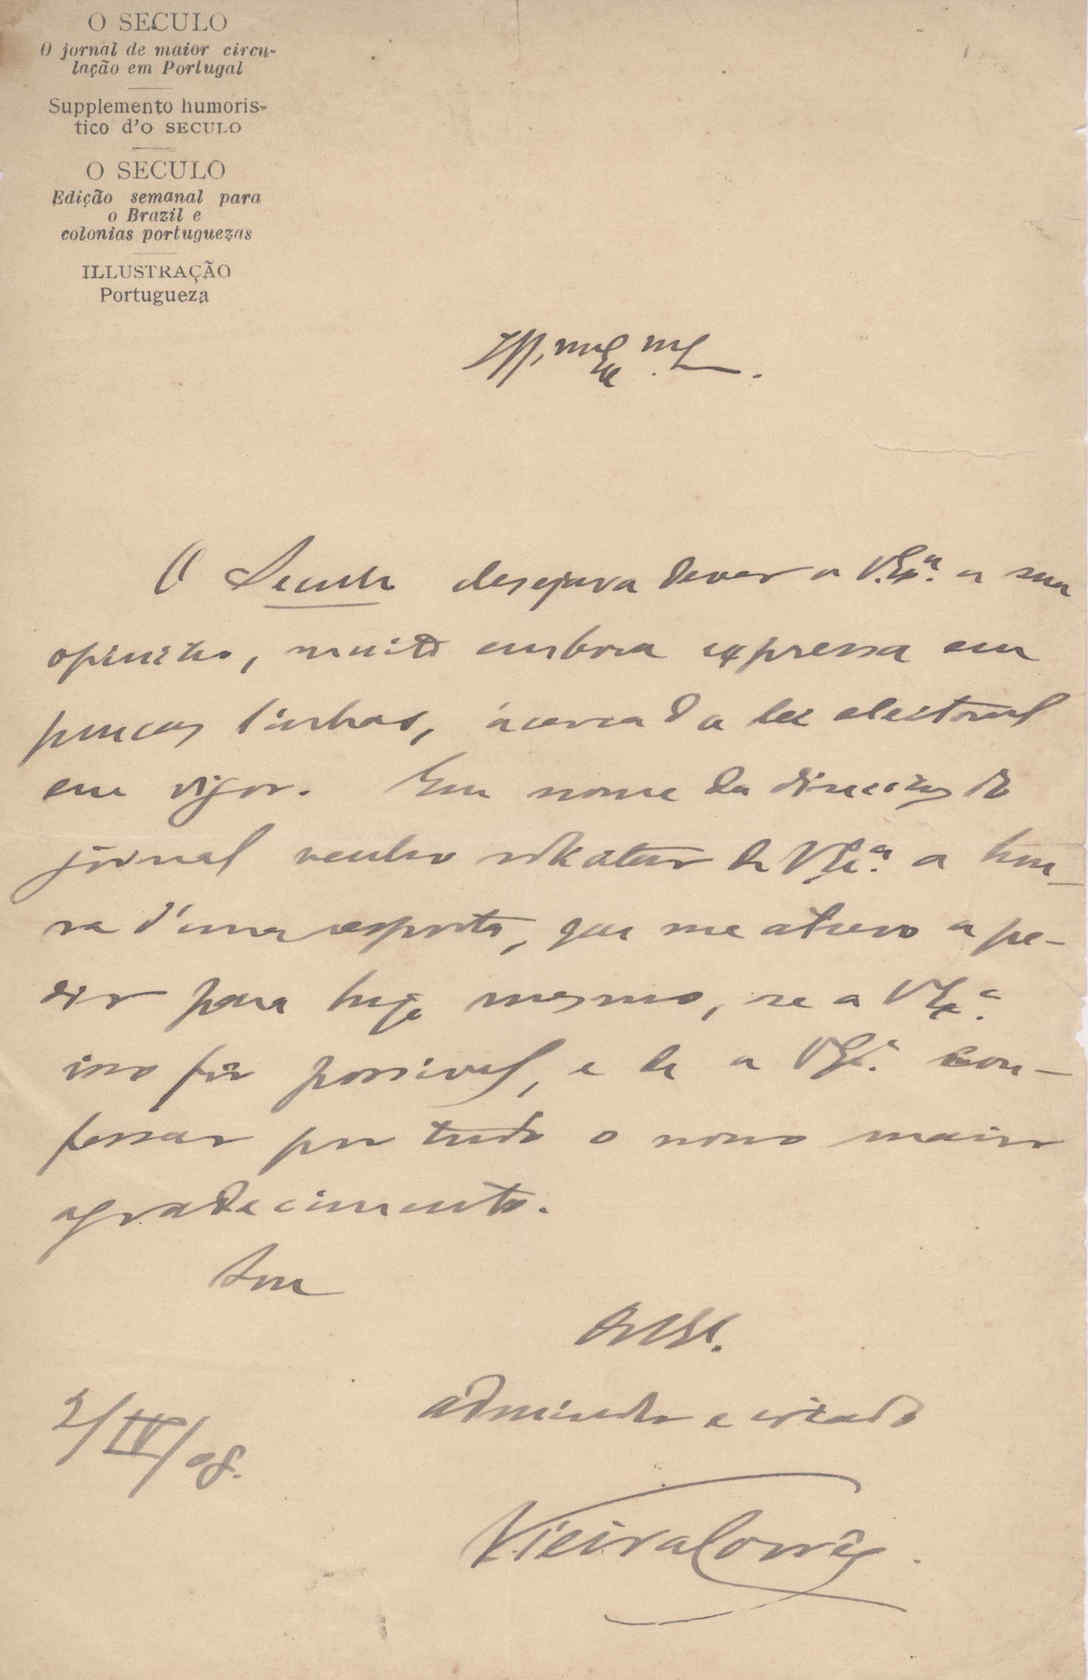 O SECULO
O jornal de maior circu-
lação em Portugal
Supplemento humoris-
tico d'O SECULO
O SECULO
Edição semanal para
o Brazil e
colonias portuguezas
ILLUSTRAÇÃO
Portugueza
O Seculo desejava dever a V. Ex.ª a sua
opinião, muito embora expressa em
poucas linhas, ácerca da lei eleitoral
em vigor. Em nome da direcção do
jornal venho solicitar de V. Ex.ª a hon-
ra d'uma resposta, que me atrevo a pe-
dir para hoje mesmo, se a V. Ex.ª
isso fôr possivel, e de a V. Ex.ª con-
fessar por tudo o nosso maior
agradecimento.
Sou
De V. Ex.ª
admirador e criado
2/IV/08.
Vieira Corrêa